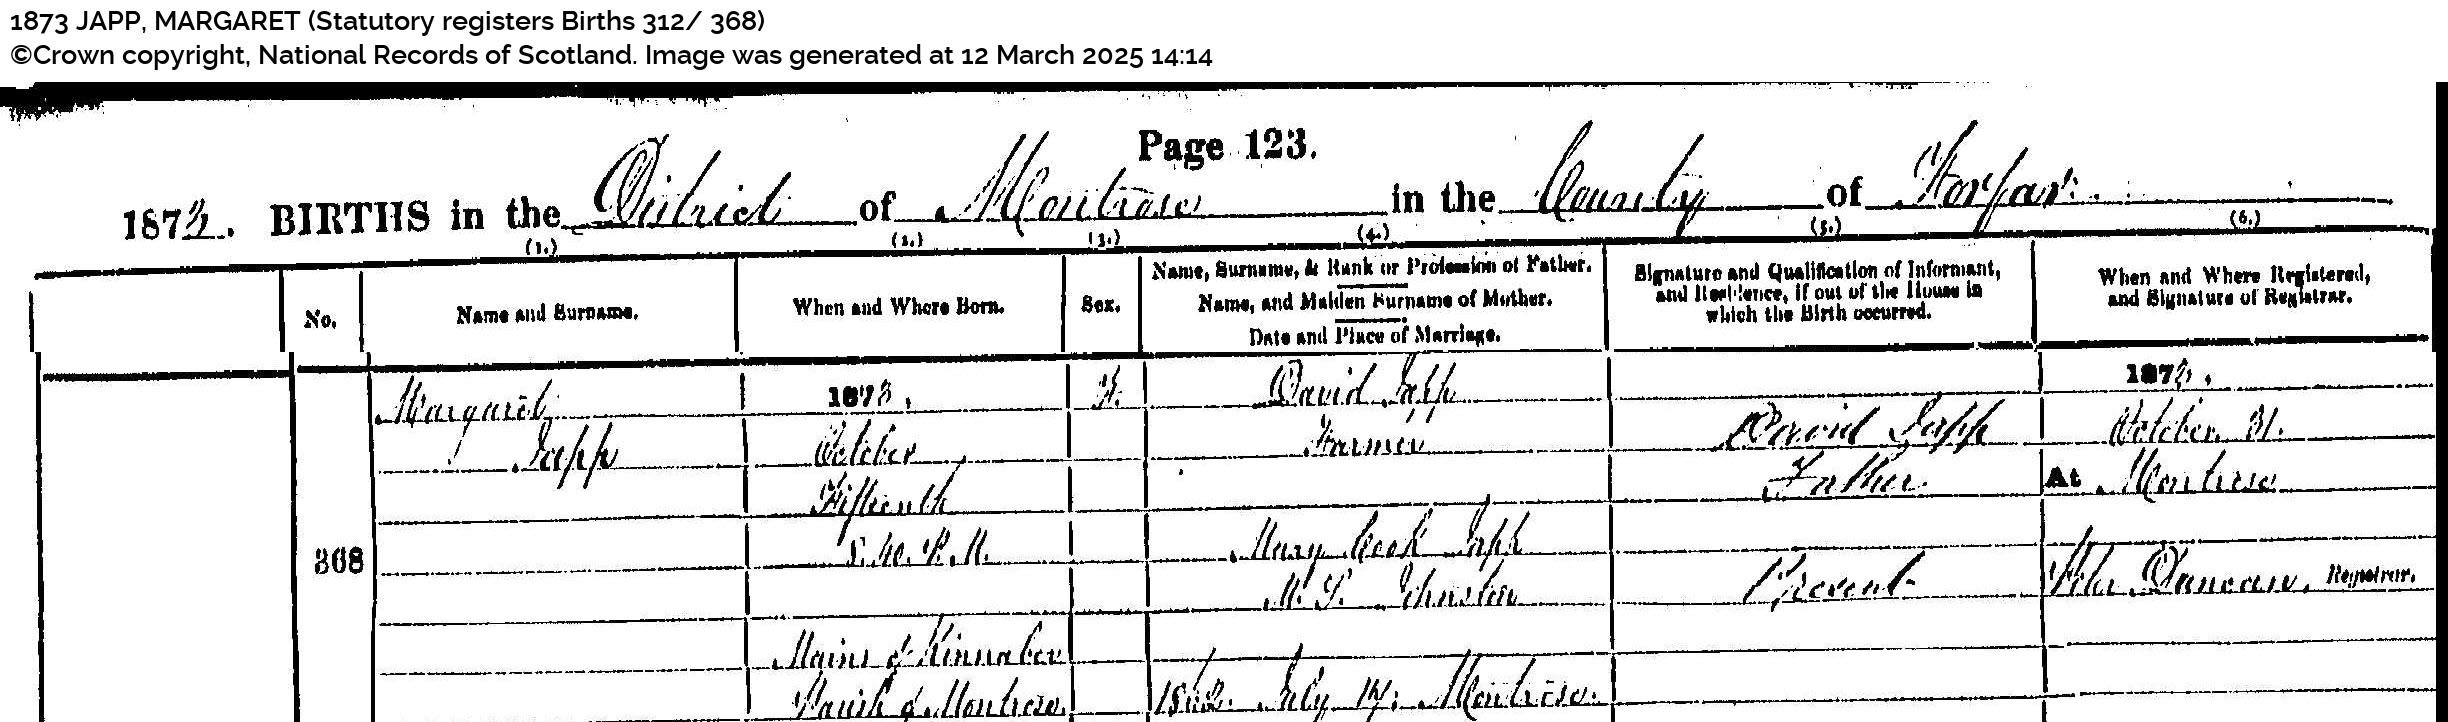 1873 JAPP, MARGARET (Statutory registers Births 312/ 368)
©Crown copyright, National Records of Scotland. Image was generated at 12 March 2025 14:14
Page 123.
1873. BIRTHS in the District of Montrose in the County of Forfar.
(1.) (2.) (3.) (4.) (5.) (6.)
No. Name and Surname. When and Where Born. Sex. Name, Surname, & Rank or Profession of Father. Name, and Maiden Surname of Mother. Date and Place of Marriage. Signature and Qualification of Informant, and Residence, if out of the House in which the Birth occurred. When and Where Registered, and Signature of Registrar.
368
Margaret
Japp
1873,
October
Fifteenth
M.
Mains of Kinnaber
Parish of Montrose.
F.
David Japp
Farmer
Mary Cook Japp
M.S. Johnston
July 17: Montrose.
David Japp
Father
Present
1873,
October 31.
At Montrose
Peter Duncan, Registrar.